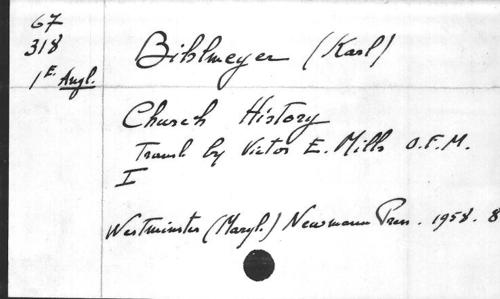 67
318
1E. Angl.
Bihlmeyer (Karl)
Church History
Transl by Victor E. Mills O.F.M.
I
Westminster (Maryl.) Newmann Press. 1958. 8